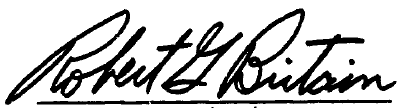 Robert G Britain